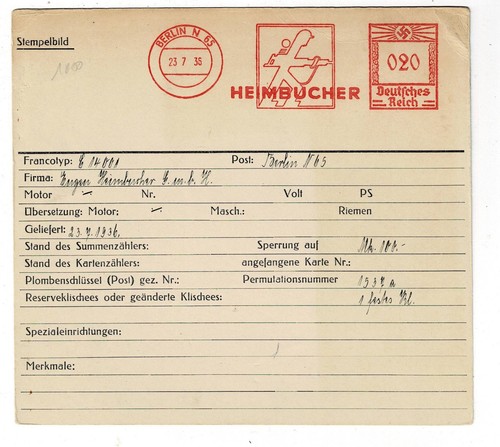 Stempelbild
1000
BERLIN N 65
23 7 36
HEIMBUCHER
020
Deutsches
Reich
Francotyp: C 14001 Post: Berlin N65
Firma: Eugen Heimbucher G.m.b.H.
Motor — Nr. Volt PS
Übersetzung: Motor: — Masch.: Riemen
Geliefert: 23.7.1936.
Stand des Summenzählers: Sperrung auf Mk. 100.-
Stand des Kartenzählers: angefangene Karte Nr.:
Plombenschlüssel (Post) gez. Nr.: Permutationsnummer 1537a
Reserveklischees oder geänderte Klischees: 1 festes Kl.
Spezialeinrichtungen:
Merkmale: